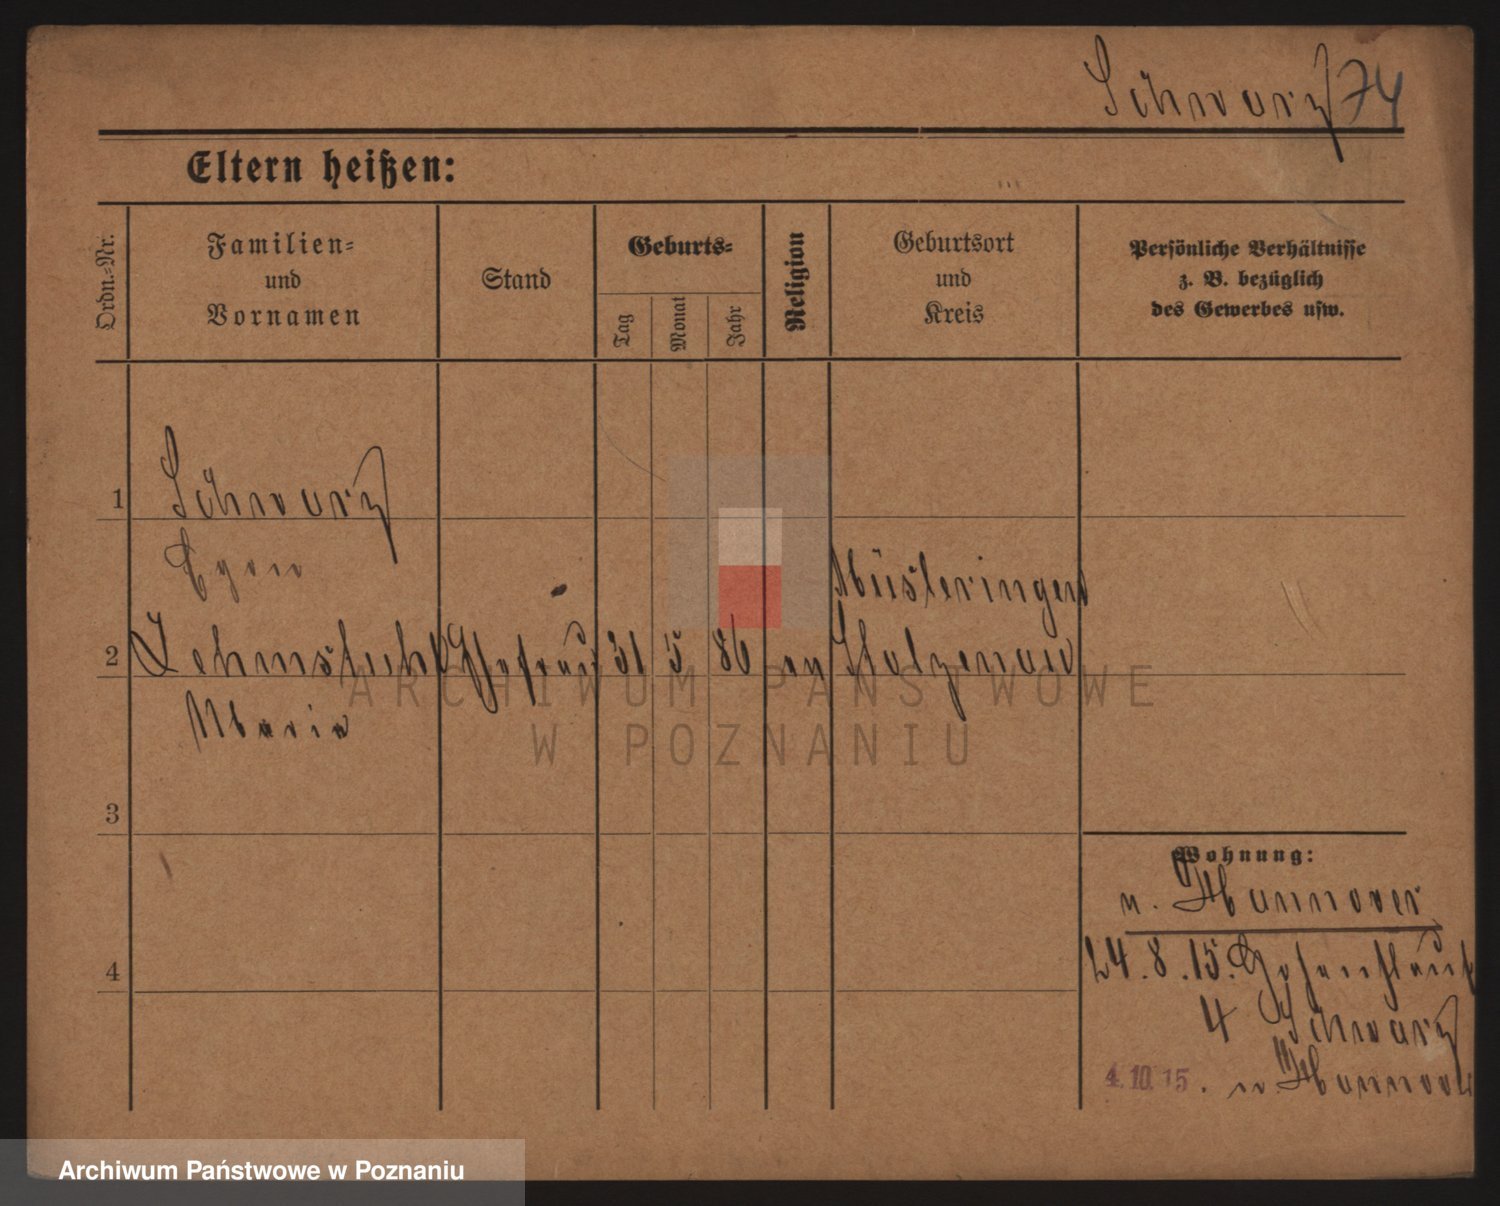 Schwarz 74
Eltern heißen:
Ordn.=Nr.
Familien=
und
Vornamen
Stand
Geburts=
Tag
Monat
Jahr
Religion
Geburtsort
und
Kreis
Persönliche Verhältnisse
z. B. bezüglich
des Gewerbes usw.
1
Schwarz
Egon
Müsleringen
2
Ehefrau 31 5 86 ev Stolzenau
Marie
3
4
Wohnung:
n. Hannover
24.8.15.
4 Schwarz
4.10.15. n. Hannover
ARCHIWUM PAŃSTWOWE
W POZNANIU
Archiwum Państwowe w Poznaniu